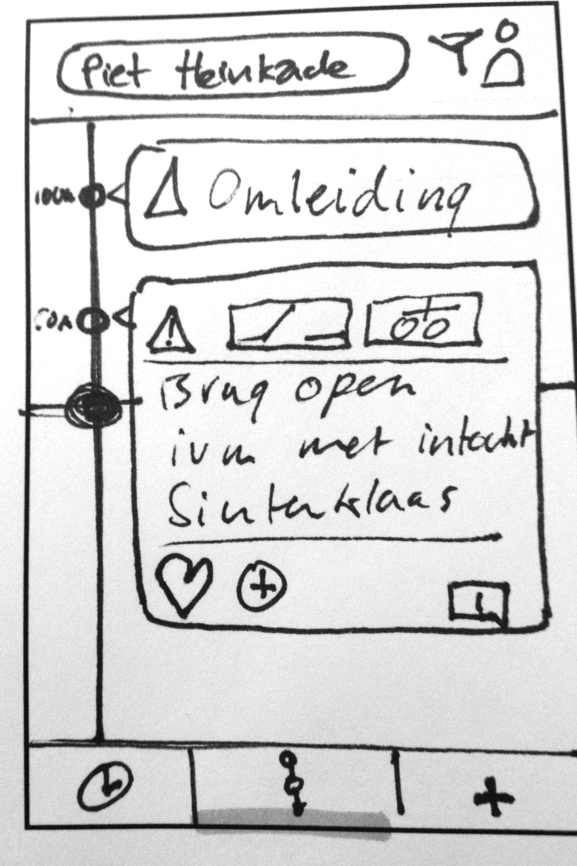 Piet Heinkade
100m
Omleiding
50m
!
Brug open
ivm met intocht
Sinterklaas
1